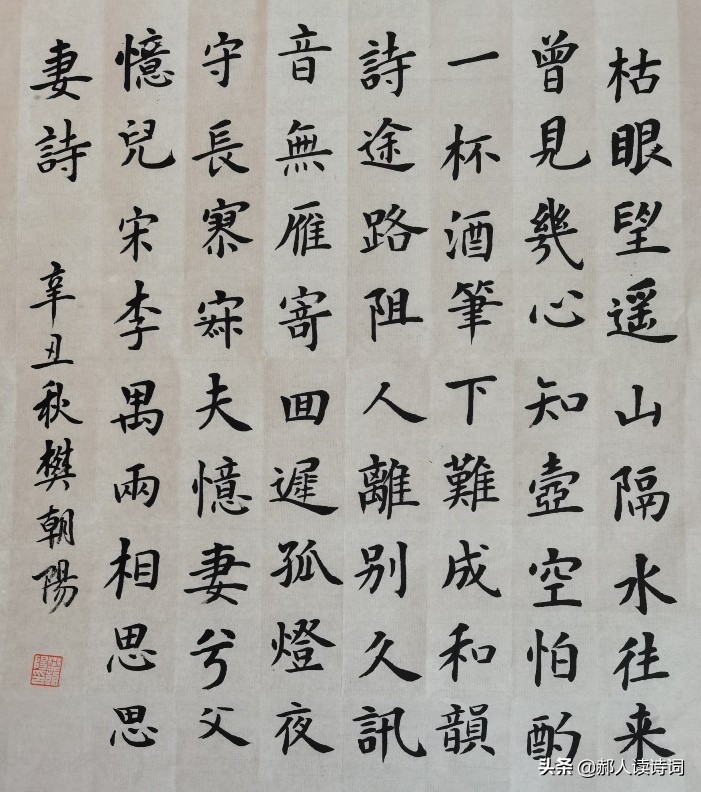 枯眼望遥山隔水往来
曾見幾心知壺空怕酌
一杯酒筆下難成和韻
詩途路阻人離別久訊
音無雁寄囬遲孤燈夜
守長寥寂夫憶妻兮父
憶兒宋李禺兩相思思
妻詩 辛丑秋樊朝陽
头条 @郝人读诗词